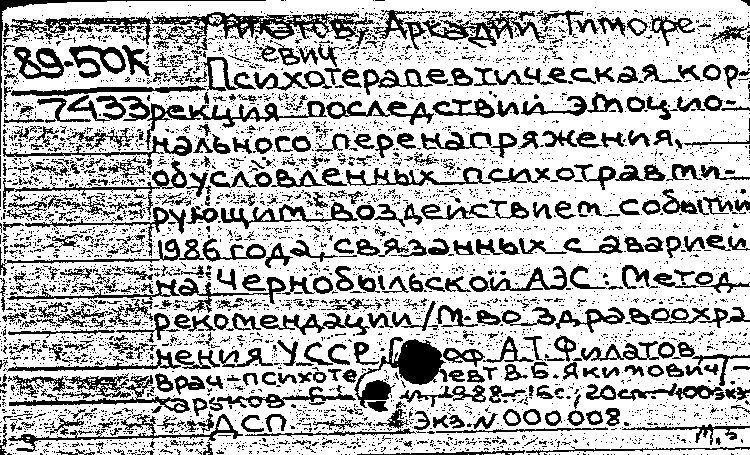 Филатов, Аркадий Тимофе-
евич
89-50К
7433
Психотерапевтическая кор-
рекция последствий эмоцио-
нального перенапряжения,
обусловленных психотравми-
рующим воздействием событий
1986 года, связанных с аварией
на Чернобыльской АЭС: Метод.
рекомендации / М-во здравоохра
нения УССР, [ оф А.Т. Филатов,
врач-психоте певт В.Б. Якимович] -
Харьков. 1988 - 16 с., 20 см - 400 экз
ДСП. Экз. N 000008.